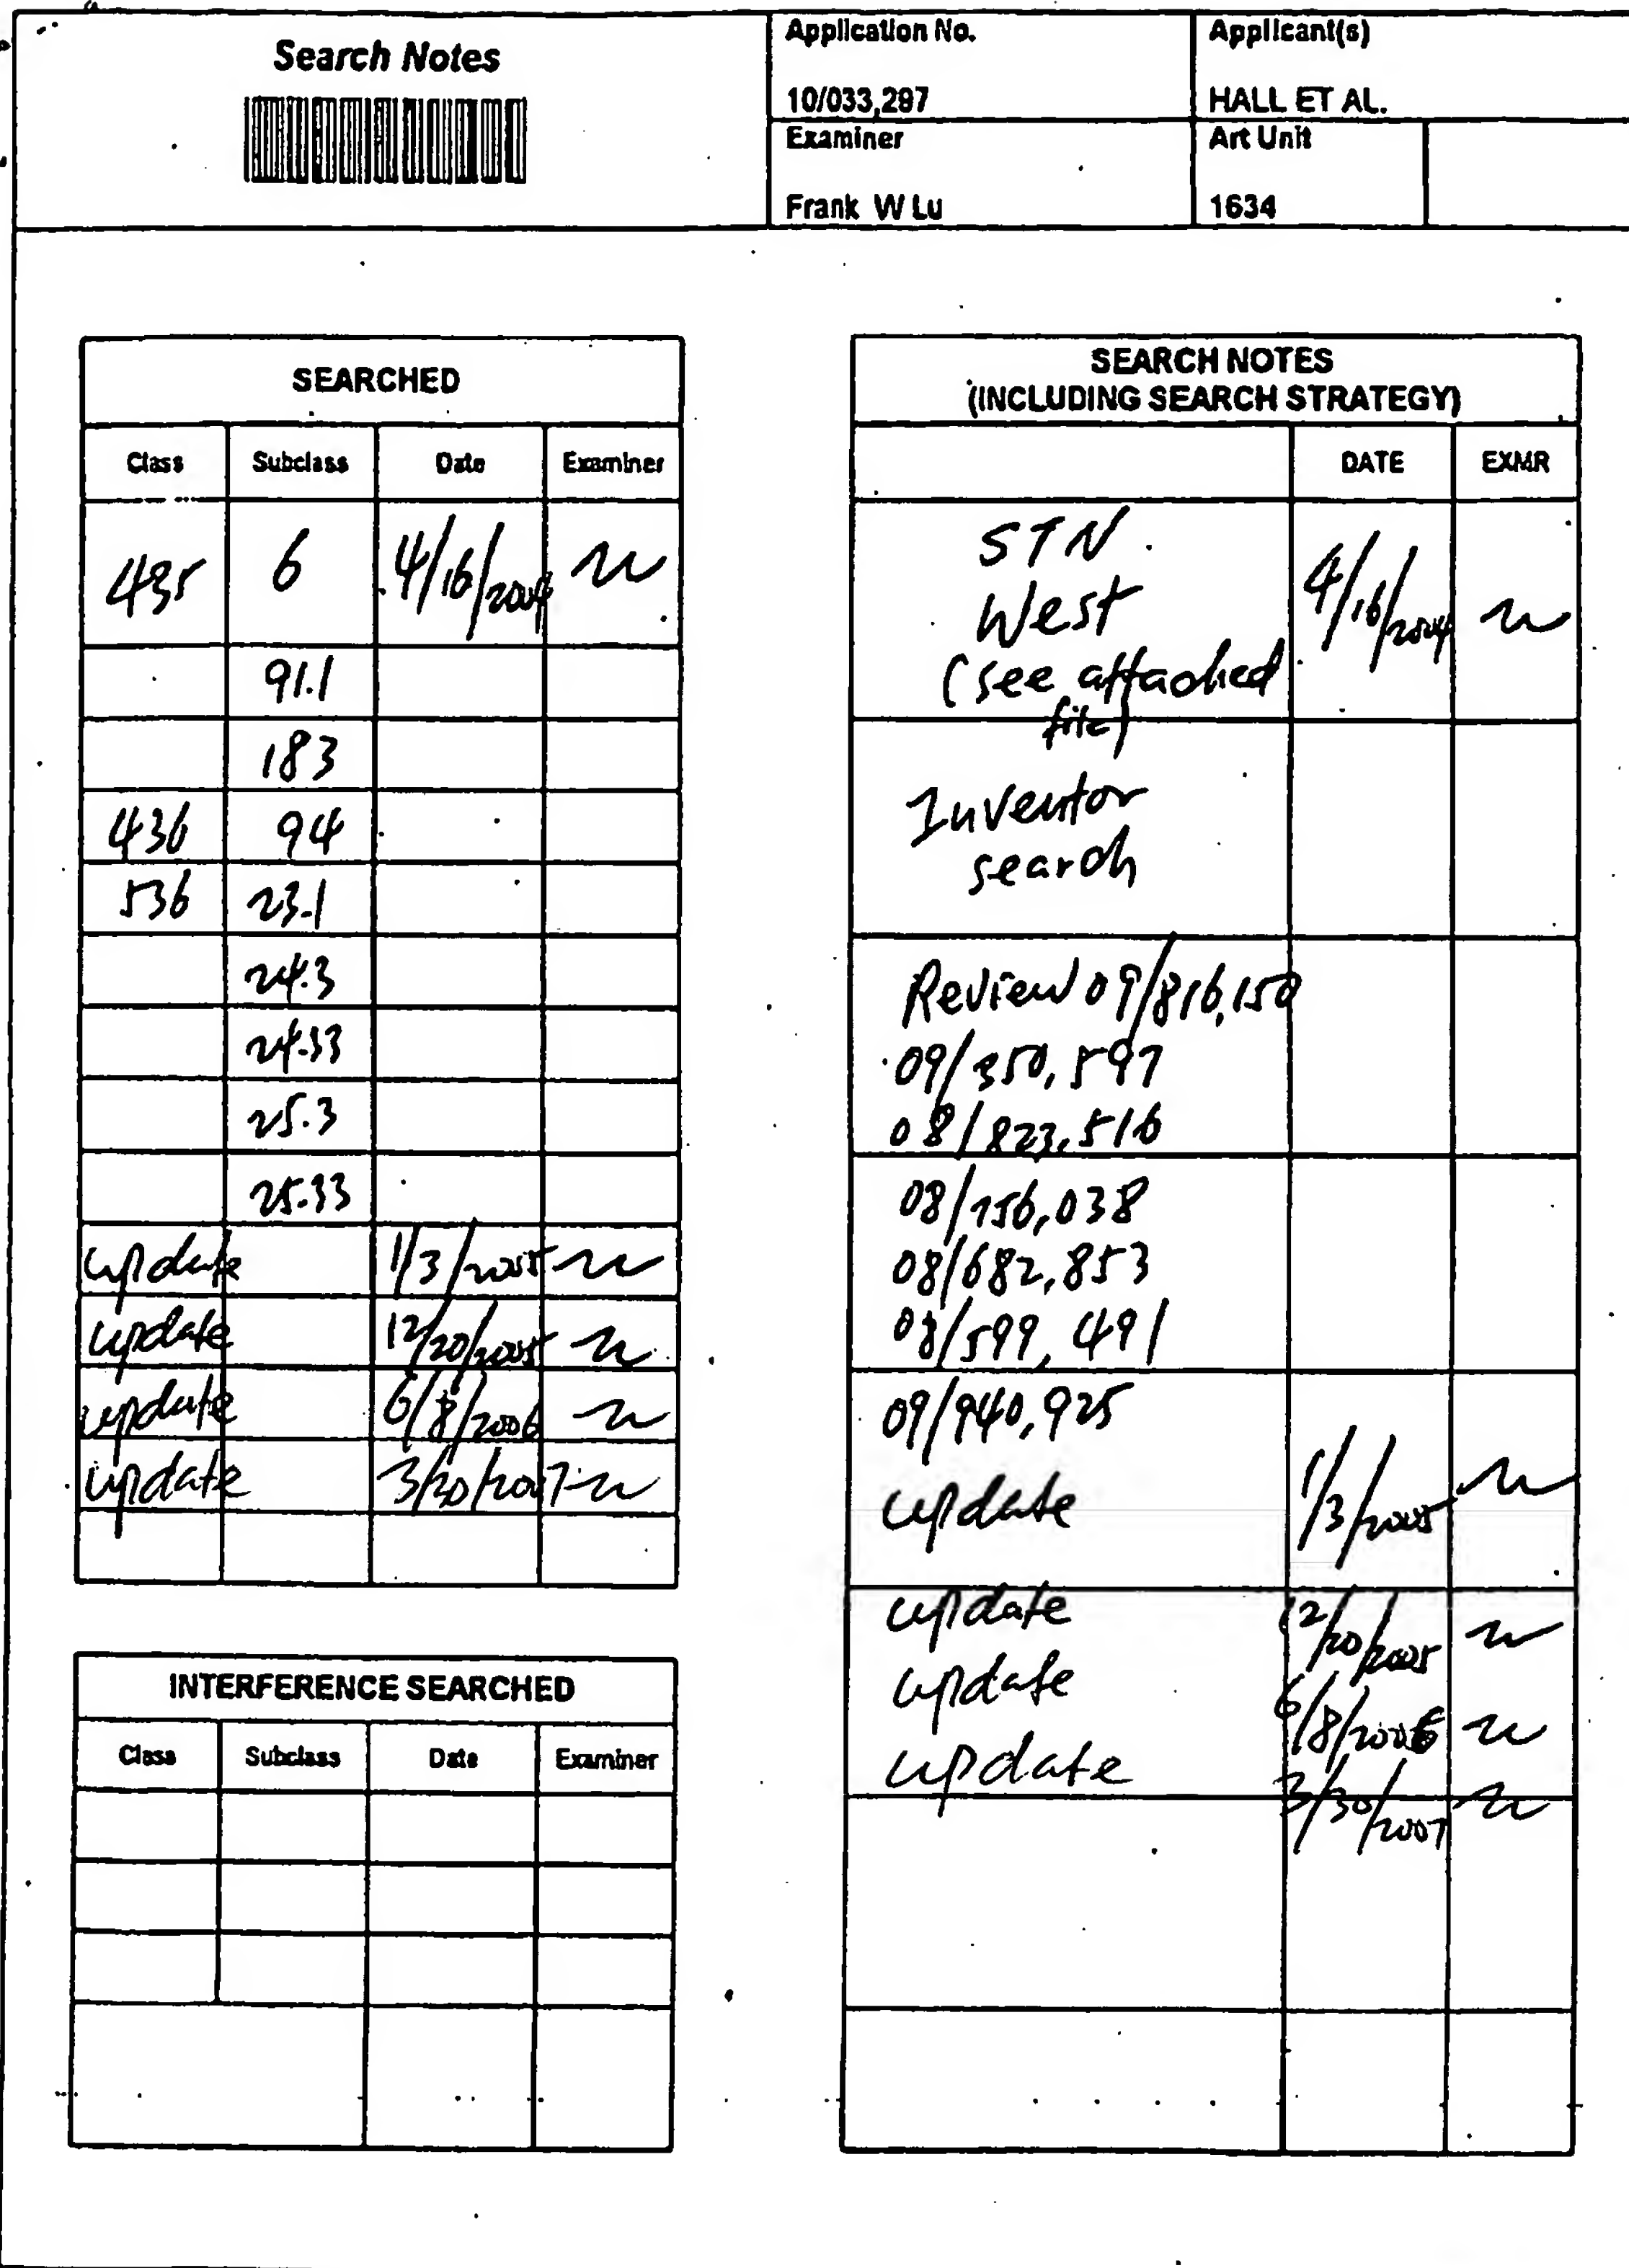 Search Notes
Application No.
10/033,297
Applicant(s)
HALL ET AL.
Examiner
Frank W Lu
Art Unit
1634
SEARCHED
Class Subclass Date Examiner
435 6 4/16/2004
91.1
183
436 94
536 23.1
24.3
24.33
25.3
25.33
update 1/3/2005
update 12/20/2005
update 6/8/2006
update 3/30/2007
INTERFERENCE SEARCHED
Class Subclass Date Examiner
SEARCH NOTES
(INCLUDING SEARCH STRATEGY)
DATE EXMR
STN
West 4/16/2004
(see attached
file)
Inventor
search
Review 09/816,150
09/350,597
08/823,516
08/756,038
08/682,853
08/599,491
09/940,925
update 1/3/2005
update 12/20/2005
update 6/8/2006
update 3/30/2007